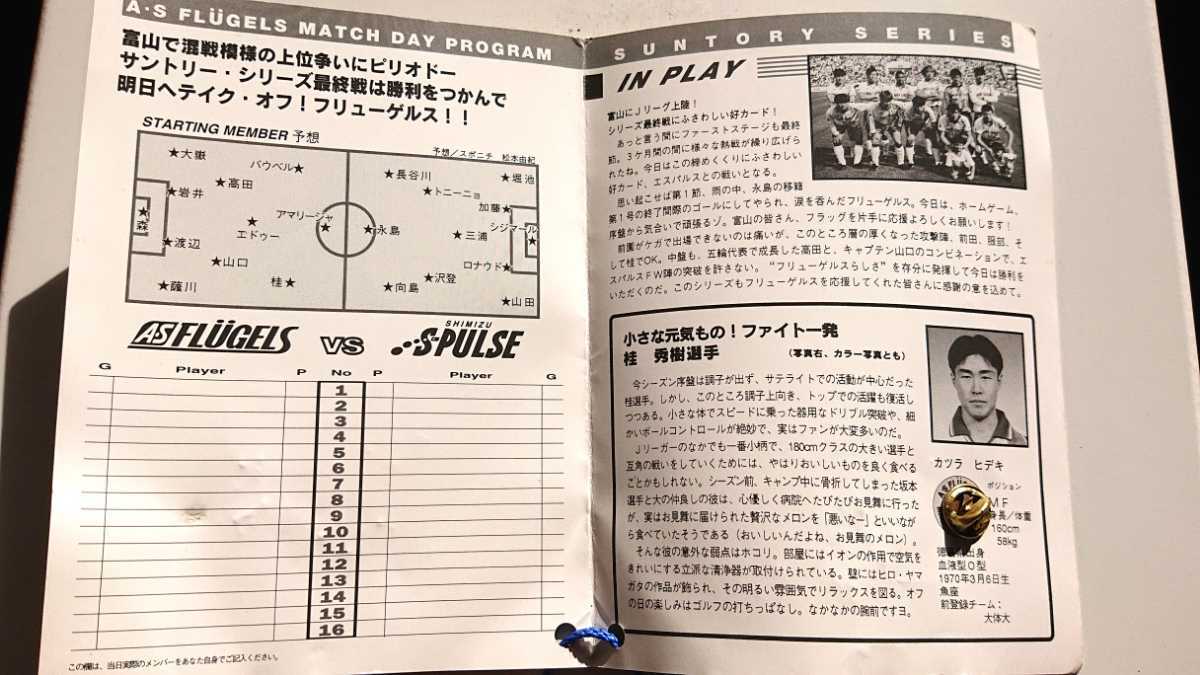 A·S FLÜGELS MATCH DAY PROGRAM
富山で混戦模様の上位争いにピリオドー
サントリー・シリーズ最終戦は勝利をつかんで
明日へテイク・オフ!フリューゲルス!!
STARTING MEMBER 予想
予想/スポニチ 松本由紀
★大嶽
バウベル★
★高田
★岩井
★森
アマリージャ★
★エドゥー
★渡辺
★山口
桂★
★薩川
★長谷川
★堀池
★トニーニョ
加藤★
シジマール★
★永島
★三浦
ロナウド★
★沢登
★向島
★山田
AS FLÜGELS VS SHIMIZU S-PULSE
G Player P No P Player G
1
2
3
4
5
6
7
8
9
10
11
12
13
14
15
16
この欄は、当日実際のメンバーをあなた自身でご記入ください。
SUNTORY SERIES
IN PLAY
富山にJリーグ上陸!
シリーズ最終戦にふさわしい好カード!
あっと言う間にファーストステージも最終
節。3ケ月間の間に様々な熱戦が繰り広げら
れたね。今日はこの締めくくりにふさわしい
好カード、エスパルスとの戦いとなる。
思い起こせば第1節、雨の中、永島の移籍
第1号の終了間際のゴールにしてやられ、涙を呑んだフリューゲルス。今日は、ホームゲーム、
序盤から気合いで頑張るゾ。富山の皆さん、フラッグを片手に応援よろしくお願いします!
前園がケガで出場できないのは痛いが、このところ層の厚くなった攻撃陣、前田、服部、そ
して桂でOK。中盤も、五輪代表で成長した高田と、キャプテン山口のコンビネーションで、エ
スパルスFW陣の突破を許さない。“フリューゲルスらしさ”を存分に発揮して今日は勝利を
いただくのだ。このシリーズもフリューゲルスを応援してくれた皆さんに感謝の意を込めて。
小さな元気もの!ファイト一発
桂 秀樹選手 (写真右、カラー写真とも)
今シーズン序盤は調子が出ず、サテライトでの活動が中心だった
桂選手。しかし、このところ調子上向き、トップでの活躍も復活し
つつある。小さな体でスピードに乗った器用なドリブル突破や、細
かいボールコントロールが絶妙で、実はファンが大変多いのだ。
Jリーガーのなかでも一番小柄で、180cmクラスの大きい選手と
互角の戦いをしていくためには、やはりおいしいものを良く食べる
ことかもしれない。シーズン前、キャンプ中に骨折してしまった坂本
選手と大の仲良しの彼は、心優しく病院へたびたびお見舞に行った
が、実はお見舞に届けられた贅沢なメロンを「悪いなー」といいなが
ら食べていたそうである(おいしいんだよね、お見舞のメロン)。
そんな彼の意外な弱点はホコリ。部屋にはイオンの作用で空気を
きれいにする立派な清浄器が取付けられている。壁にはヒロ・ヤマ
ガタの作品が飾られ、その明るい雰囲気でリラックスを図る。オフ
の日の楽しみはゴルフの打ちっぱなし。なかなかの腕前ですヨ。
カツラ ヒデキ
ポジション
MF
身長/体重
160cm
58kg
出身
血液型O型
1970年3月6日生
魚座
前登録チーム:
大体大